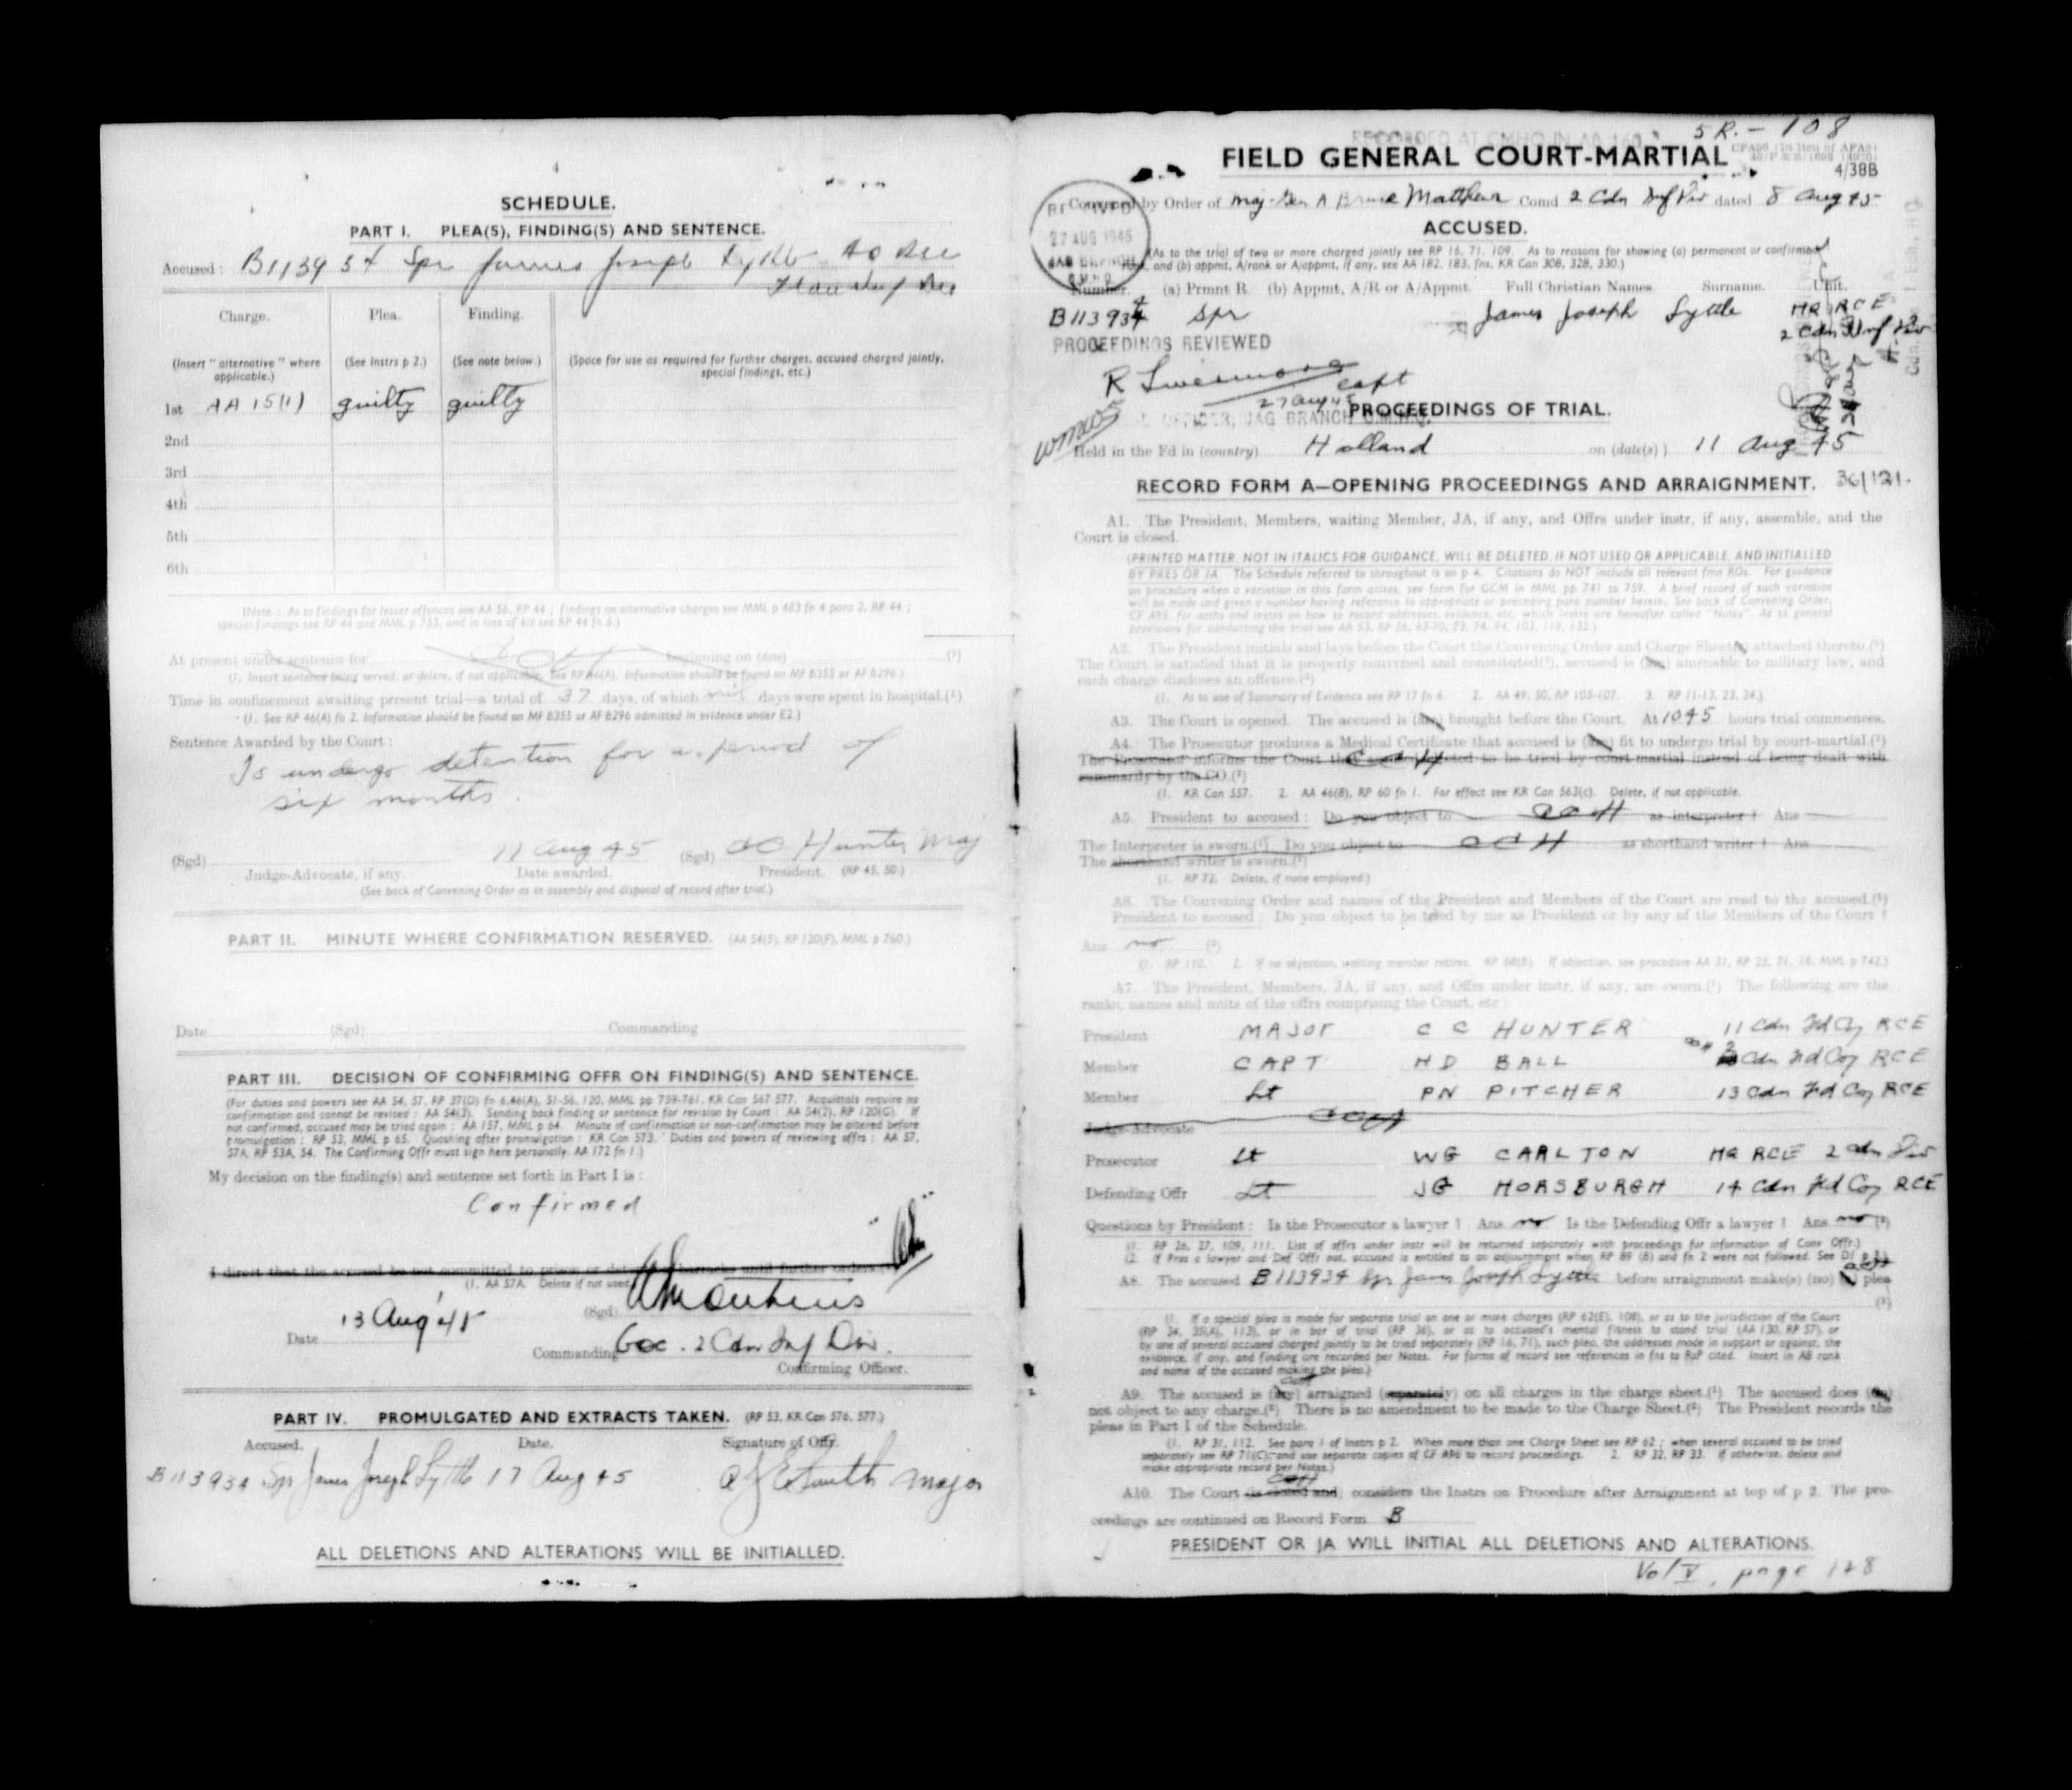 4
SCHEDULE.
PART I. PLEA(S), FINDING(S) AND SENTENCE.
Accused : B113934 Spr James Joseph Lyttle
Charge. Plea. Finding.
(Insert "alternative" where applicable.) (See Instrs p 2.) (See note below.) (Space for use as required for further charges, accused charged jointly, special findings, etc.)
1st AA 15(1) guilty guilty
2nd
3rd
4th
5th
6th
(Note : As to findings for lesser offences see AA 56, RP 44 ; findings on alternative charges see MML p 403 fn 4 para 2, RP 44 ;
special findings see RP 44 and MML p 753, and in loss of kit see RP 44 fn 6.)
At present under sentence for CCH beginning on (date) (¹)
(1. Insert sentence being served, or delete, if not applicable. See RP 46(A). Information should be found on MF B355 or AF B296.)
Time in confinement awaiting present trial—a total of 37 days, of which nil days were spent in hospital.(¹)
(1. See RP 46(A) fn 2. Information should be found on MF B355 or AF B296 admitted in evidence under E2.)
Sentence Awarded by the Court :
To undergo detention for a period of
six months.
(Sgd) 11 Aug 45 (Sgd) CC Hunter Maj
Judge-Advocate, if any. Date awarded. President. (RP 45, 50.)
(See back of Convening Order as to assembly and disposal of record after trial.)
PART II. MINUTE WHERE CONFIRMATION RESERVED. (AA 54(5), RP 120(F), MML p 760.)
Date (Sgd) Commanding
PART III. DECISION OF CONFIRMING OFFR ON FINDING(S) AND SENTENCE.
(For duties and powers see AA 54, 57, RP 37(D) fn 6,46(A), 51-56, 120, MML pp 759-761, KR Can 567-577. Acquittals require no
confirmation and cannot be revised : AA 54(3). Sending back finding or sentence for revision by Court : AA 54(2), RP 120(G). If
not confirmed, accused may be tried again : AA 157, MML p 64. Minute of confirmation or non-confirmation may be altered before
promulgation : RP 53, MML p 65. Quashing after promulgation : KR Can 573. Duties and powers of reviewing offrs : AA 57,
57A, RP 53A, 54. The Confirming Offr must sign here personally. AA 172 fn 1.)
My decision on the finding(s) and sentence set forth in Part I is :
Confirmed
I direct that the accused be not committed to prison or detention barracks until further orders.
(1. AA 57A. Delete if not used.
13 Aug 45 (Sgd)
Date Commanding Goc. 2 Cdn Inf Div.
Confirming Officer.
PART IV. PROMULGATED AND EXTRACTS TAKEN. (RP 53, KR Can 576, 577.)
Accused. Date. Signature of Offr.
B113934 Spr James Joseph Lyttle 17 Aug 45 Smith Major
ALL DELETIONS AND ALTERATIONS WILL BE INITIALLED.
RECORDED AT CMHQ IN
5 R. – 108
FIELD GENERAL COURT-MARTIAL
4/38B
Convened by Order of Maj-Gen A Bruce Matthews Comd 2 Cdn Inf Div dated 8 Aug 45
RECEIVED
27 AUG 1945
JAG BRANCH
CMHQ
ACCUSED.
(As to the trial of two or more charged jointly see RP 16, 71, 109. As to reasons for showing (a) permanent or confirmed
and (b) appmt, A/rank or A/appmt, if any, see AA 182, 183, fns, KR Can 308, 328, 330.)
Number. (a) Prmnt R. (b) Appmt, A/R or A/Appmt. Full Christian Names. Surname. Unit.
B113934 Spr James Joseph Lyttle HQ RCE
2 Cdn Inf Div
PROCEEDINGS REVIEWED
Capt
27 Aug 45
OFFICER, JAG BRANCH C.M.H.Q.
PROCEEDINGS OF TRIAL.
Held in the Fd in (country) Holland on (date(s)) 11 Aug 45
RECORD FORM A—OPENING PROCEEDINGS AND ARRAIGNMENT. 36/121.
A1. The President, Members, waiting Member, JA, if any, and Offrs under instr, if any, assemble, and the
Court is closed.
(PRINTED MATTER, NOT IN ITALICS FOR GUIDANCE, WILL BE DELETED, IF NOT USED OR APPLICABLE, AND INITIALLED
BY PRES OR JA. The Schedule referred to throughout is on p 4. Citations do NOT include all relevant fmn ROs. For guidance
on procedure when a variation in this form arises, see form for GCM in MML pp 741 to 759. A brief record of such variation
will be made and given a number having reference to appropriate or preceding para number herein. See back of Convening Order,
CF A95, for oaths and instrs on how to record addresses, evidence, etc, which instrs are hereafter called "Notes". As to general
provisions for conducting the trial see AA 53, RP 56, 63-70, 73, 74, 94, 103, 119, 132.)
A2. The President initials and lays before the Court the Convening Order and Charge Sheet(s) attached thereto.(¹)
The Court is satisfied that it is properly convened and constituted(²), accused is (are) amenable to military law, and
each charge discloses an offence.(³)
(1. As to use of Summary of Evidence see RP 17 fn 6. 2. AA 49, 50, RP 105-107. 3. RP 11-13, 23, 24.)
A3. The Court is opened. The accused is (are) brought before the Court. At 1045 hours trial commences.
A4. The Prosecutor produces a Medical Certificate that accused is (are) fit to undergo trial by court-martial.(¹)
The Prosecutor informs the Court that accused elected to be tried by court-martial instead of being dealt with
summarily by the CO.(²) CCH
(1. KR Can 557. 2. AA 46(8), RP 60 fn 1. For effect see KR Can 563(c). Delete, if not applicable.
A5. President to accused : Do you object to CCH as interpreter ? Ans
The Interpreter is sworn.(¹) Do you object to CCH as shorthand writer ? Ans
The shorthand writer is sworn.(¹)
(1. RP 72. Delete, if none employed.)
A6. The Convening Order and names of the President and Members of the Court are read to the accused.(¹)
President to accused : Do you object to be tried by me as President or by any of the Members of the Court ?
Ans no (²)
(1. RP 110. 2. If no objection, waiting member retires. RP 68(B). If objection, see procedure AA 51, RP 25, 71, 16, MML p 742.)
A7. The President, Members, JA, if any, and Offrs under instr, if any, are sworn.(¹) The following are the
ranks, names and units of the offrs comprising the Court, etc :
President MAJOR C C HUNTER 11 Cdn Fd Coy RCE
Member CAPT HD BALL 2 Cdn Fd Coy RCE
Member Lt PN PITCHER 13 Cdn Fd Coy RCE
Judge-Advocate CCH
Prosecutor Lt WG CARLTON HQ RCE 2 Cdn Div
Defending Offr Lt JG HORSBURGH 14 Cdn Fd Coy RCE
Questions by President : Is the Prosecutor a lawyer ? Ans no Is the Defending Offr a lawyer ? Ans no (²)
(1. RP 26, 27, 109, 111. List of offrs under instr will be returned separately with proceedings for information of Conv Offr.)
(2. If Pros a lawyer and Def Offr not, accused is entitled to an adjournment when RP 89 (B) and fn 2 were not followed. See D1 p 3.)
A8. The accused B113934 Spr James Joseph Lyttle before arraignment make(s) (no) (a) plea
(¹)
(1. If a special plea is made for separate trial on one or more charges (RP 62(E), 108), or as to the jurisdiction of the Court
(RP 34, 35(A), 113), or in bar of trial (RP 36), or as to accused's mental fitness to stand trial (AA 130, RP 57), or
by one of several accused charged jointly to be tried separately (RP 16, 71), such plea, the addresses made in support or against, the
evidence, if any, and finding are recorded per Notes. For forms of record see references in fns to RsP cited. Insert in A8 rank
and name of the accused making the plea.)
A9. The accused is (are) arraigned (separately) on all charges in the charge sheet.(¹) The accused does (do)
not object to any charge.(²) There is no amendment to be made to the Charge Sheet.(²) The President records the
pleas in Part I of the Schedule.
(1. RP 31, 112. See para 1 of Instrs p 2. When more than one Charge Sheet see RP 62 ; when several accused to be tried
separately see RP 71(C), and use separate copies of CF A96 to record proceedings. 2. RP 32, RP 33. If otherwise, delete and
make appropriate record per Notes.)
A10. The Court (is closed and) considers the Instrs on Procedure after Arraignment at top of p 2. The pro-
ceedings are continued on Record Form B
PRESIDENT OR JA WILL INITIAL ALL DELETIONS AND ALTERATIONS.
Vol V, page 128